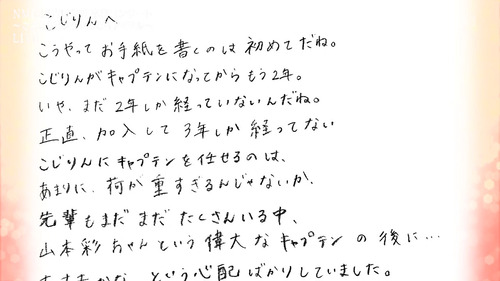 こじりんへ
こうやってお手紙を書くのは初めてだね。
こじりんがキャプテンになってからもう2年。
いや、まだ2年しか経っていないんだね。
正直、加入して3年しか経ってない
こじりんにキャプテンを任せるのは、
あまりに、荷が重すぎるんじゃないか、
先輩もまだまだたくさんいる中、
山本彩ちゃんという偉大なキャプテンの後に…
という心配ばかりしていました。